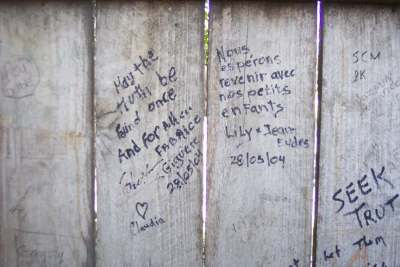 May the
truth be
found once
And For All...
FABRICE
28/05/04
Claudia
Nous
espérons
revenir avec
nos petits
enfants
Lily & Jean
Eudes
28/05/04
SCM
SEEK
TRUT
Let Them